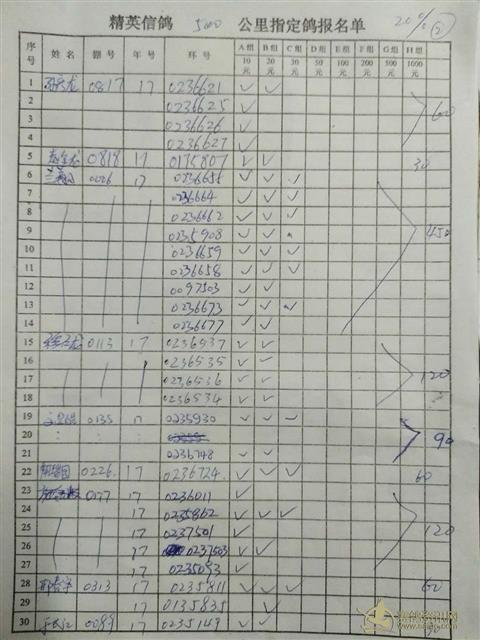 精英信鸽 500 公里指定鸽报名单 20% ②
序号 姓名 棚号 年号 环号 A组 B组 C组 D组 E组 F组 G组 H组
10元 20元 30元 50元 100元 200元 500元 1000元
1 0817 17 0236621 ✓ ✓
2 0236625 ✓
3 0236626 ✓ 60
4 0236627 ✓
5 0818 17 0175807 ✓ ✓ 30
6 0006 17 0236655 ✓ ✓ ✓
7 0236664 ✓ ✓ ✓
8 0236662 ✓ ✓ ✓
9 0235908 ✓ ✓ 450
10 0236659 ✓ ✓ ✓
11 0236658 ✓ ✓ ✓
12 0097503 ✓ ✓
13 0236673 ✓ ✓ ✓
14 0236677 ✓ ✓
15 0113 17 0236537 ✓ ✓
16 0236535 ✓ ✓
17 0236536 ✓ ✓ 120
18 0236534 ✓ ✓
19 0135 17 0235930 ✓ ✓ ✓
20 90
21 0236748 ✓ ✓
22 0226 17 0236724 ✓ ✓ ✓ 60
23 0177 17 0236011 ✓
24 17 0235862 ✓ ✓ ✓
25 17 0237501 ✓ 120
26 17 0237503 ✓ ✓
27 17 0235053 ✓
28 0313 17 0235811 ✓ ✓ ✓ 60
29 17 0135835 ✓
30 0089 17 0235149 ✓ ✓